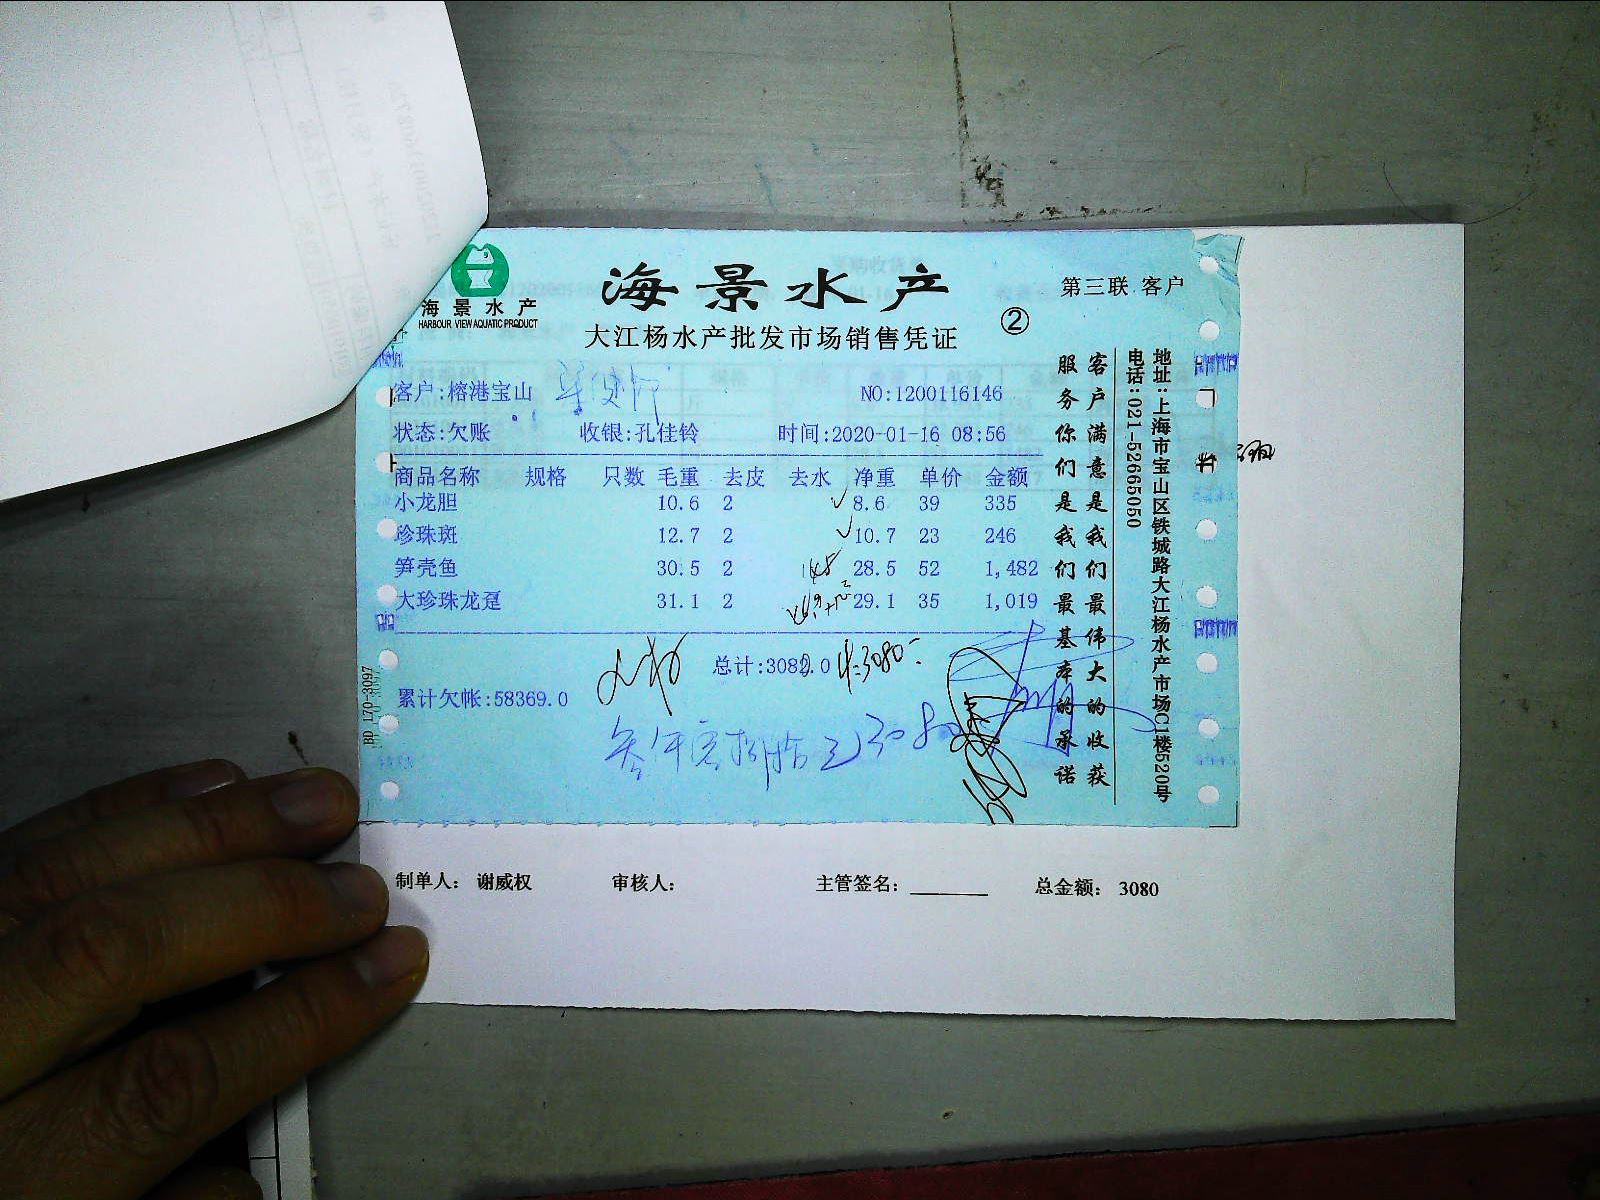 海景水产
HARBOUR VIEW AQUATIC PRODUCT
海景水产
大江杨水产批发市场销售凭证
②
第三联 客户
客户:榕港宝山
NO:1200116146
状态:欠账 收银:孔佳铃 时间:2020-01-16 08:56
商品名称 规格 只数 毛重 去皮 去水 净重 单价 金额
小龙胆 10.6 2 8.6 39 335
珍珠斑 12.7 2 10.7 23 246
笋壳鱼 30.5 2 28.5 52 1,482
大珍珠龙趸 31.1 2 29.1 35 1,019
总计:3082.0
3080
累计欠帐:58369.0
3080
客户满意是我们最伟大的收获
服务你们是我们最基本的承诺
地址:上海市宝山区铁城路大江杨水产市场C1楼520号
电话:021-52665050
BD 170-3097
制单人: 谢威权 审核人: 主管签名: 总金额: 3080